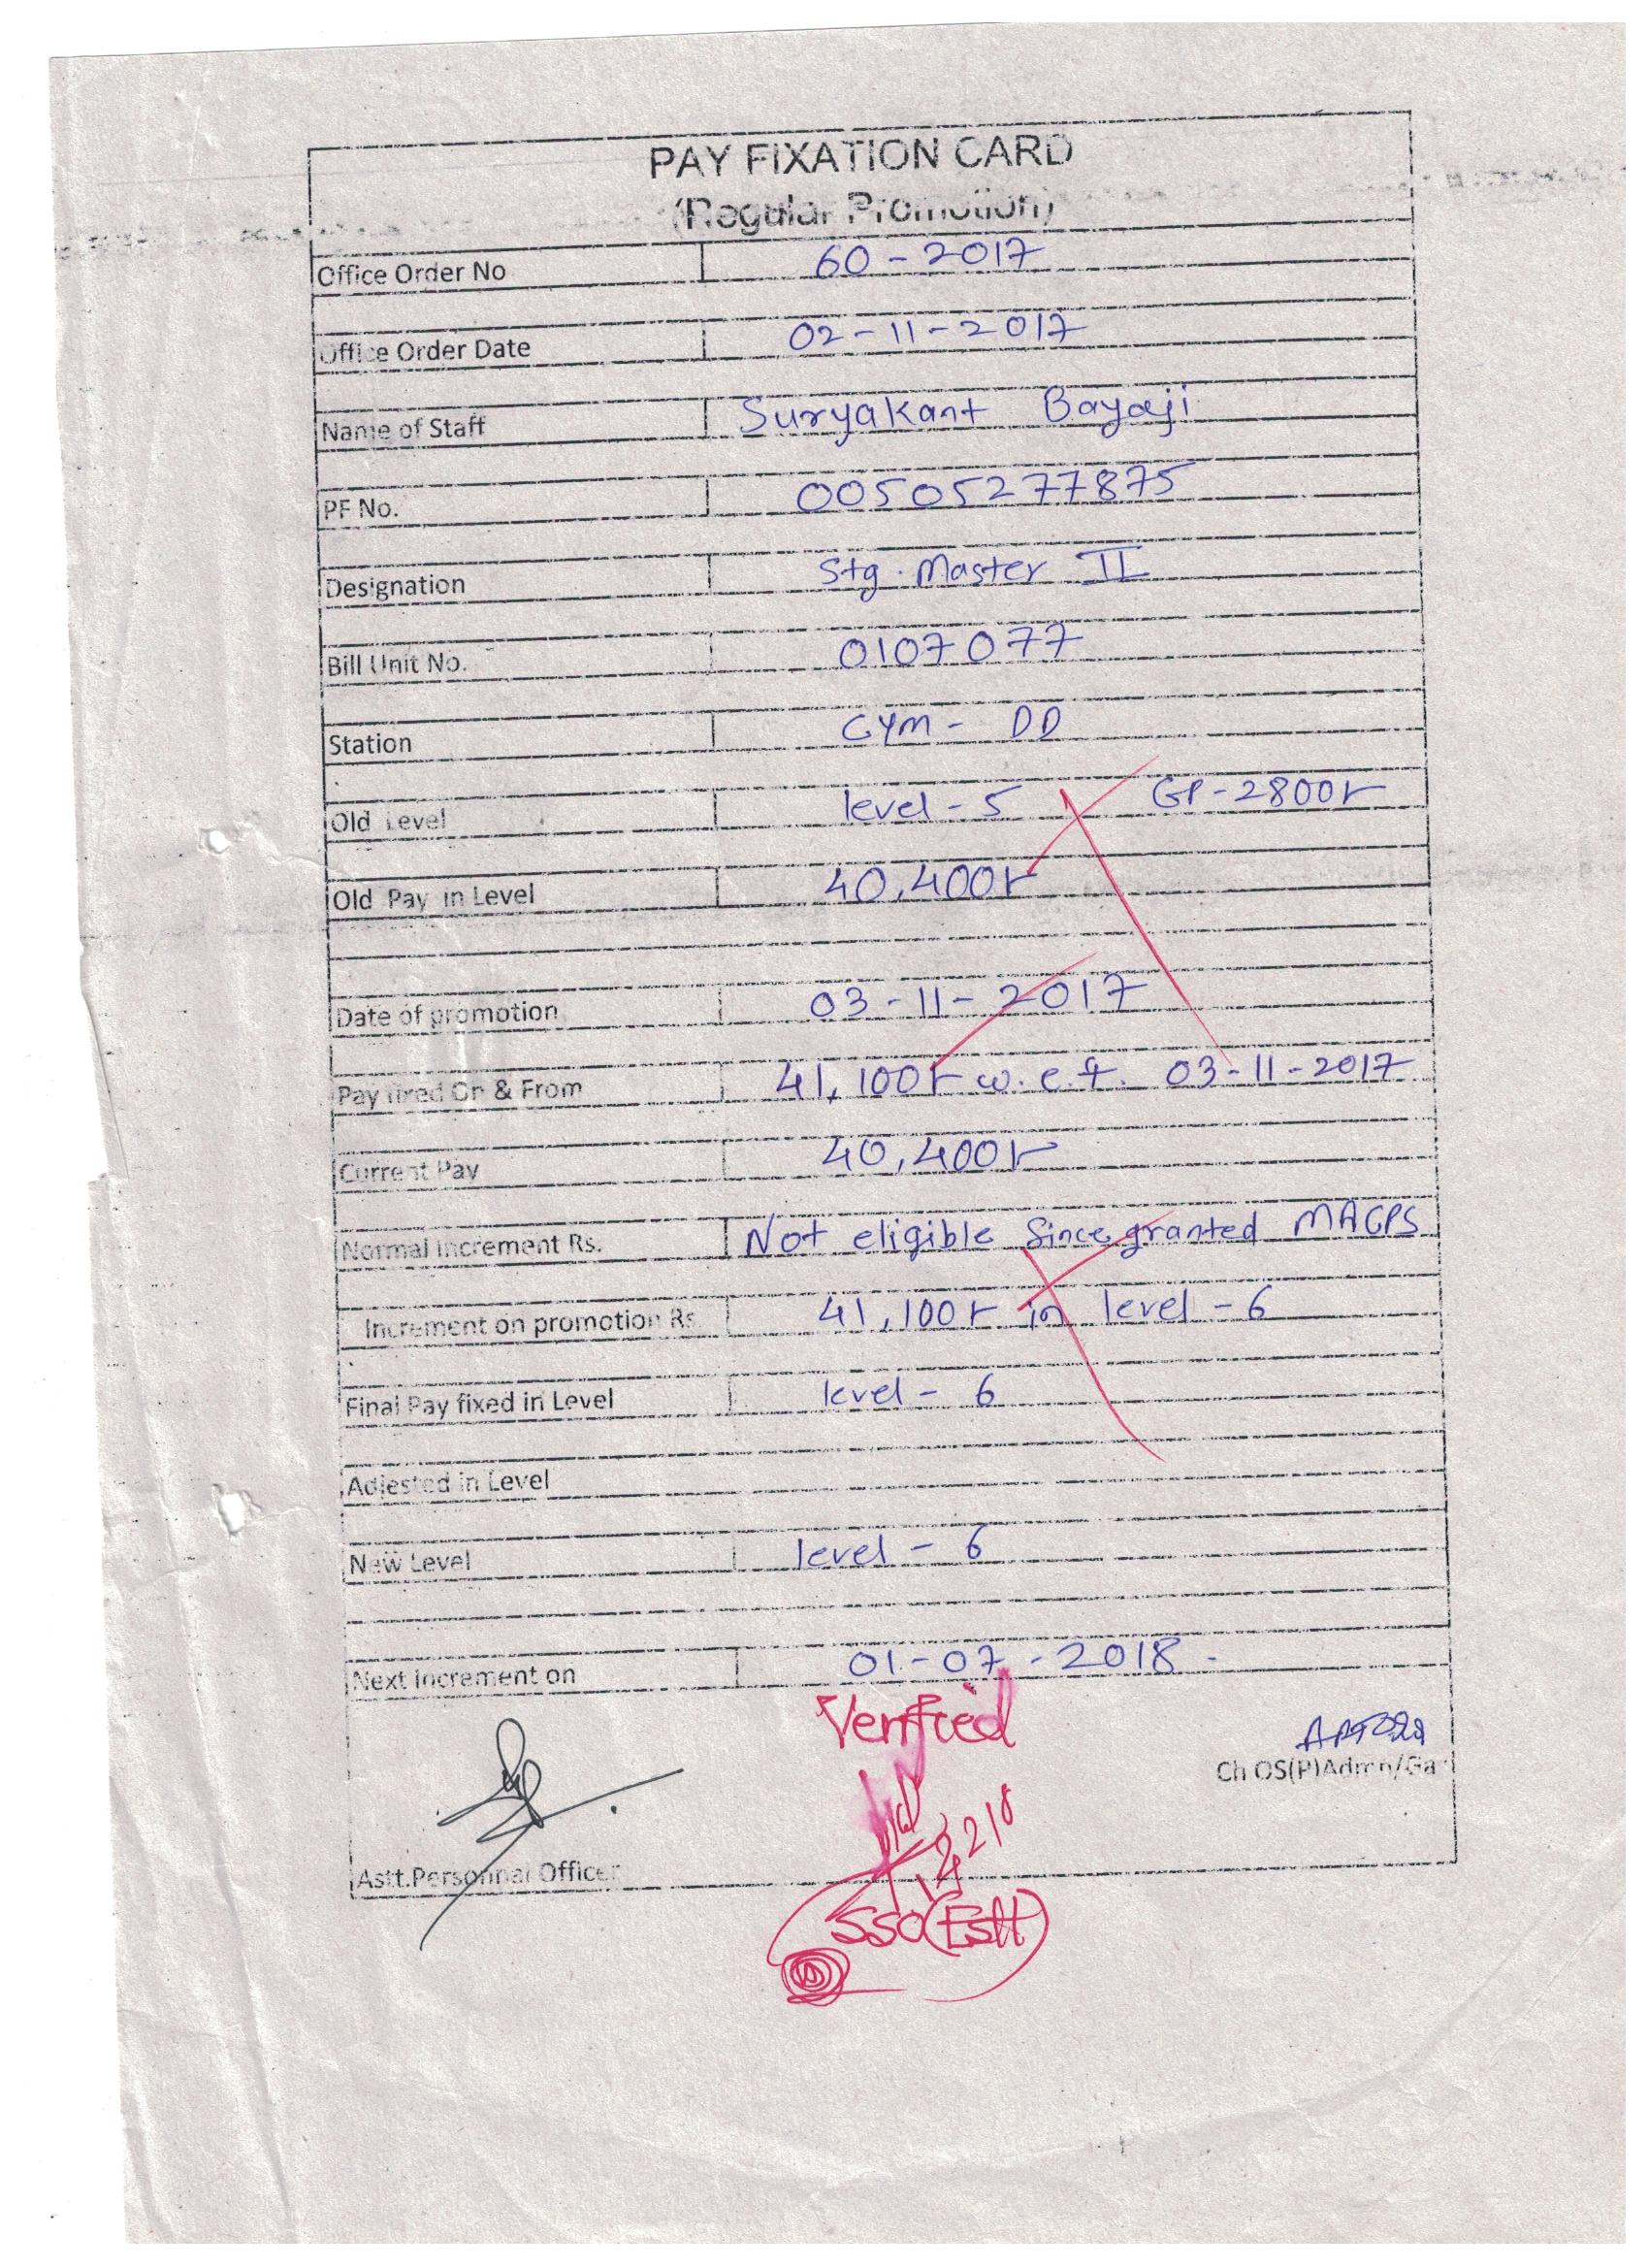 PAY FIXATION CARD
(Regular Promotion)
Office Order No 60-2017
Office Order Date 02-11-2017
Name of Staff Suryakant Bayaji
PF No. 00505277875
Designation Stg. Master II
Bill Unit No. 0107077
Station CYM- DD
Old Level level-5 GP-2800/-
Old Pay in Level 40,400/-
Date of promotion 03-11-2017
Pay fixed On & From 41,100/- w.e.f. 03-11-2017
Current Pay 40,400/-
Normal Increment Rs. Not eligible Since granted MACPS
Increment on promotion Rs 41,100/- in level-6
Final Pay fixed in Level level-6
Adjested in Level
New Level level-6
Next Increment on 01-07-2018.
Verified
Ch OS(P)Admn/Ga
Astt.Personnal Officer
SSO(Estt)